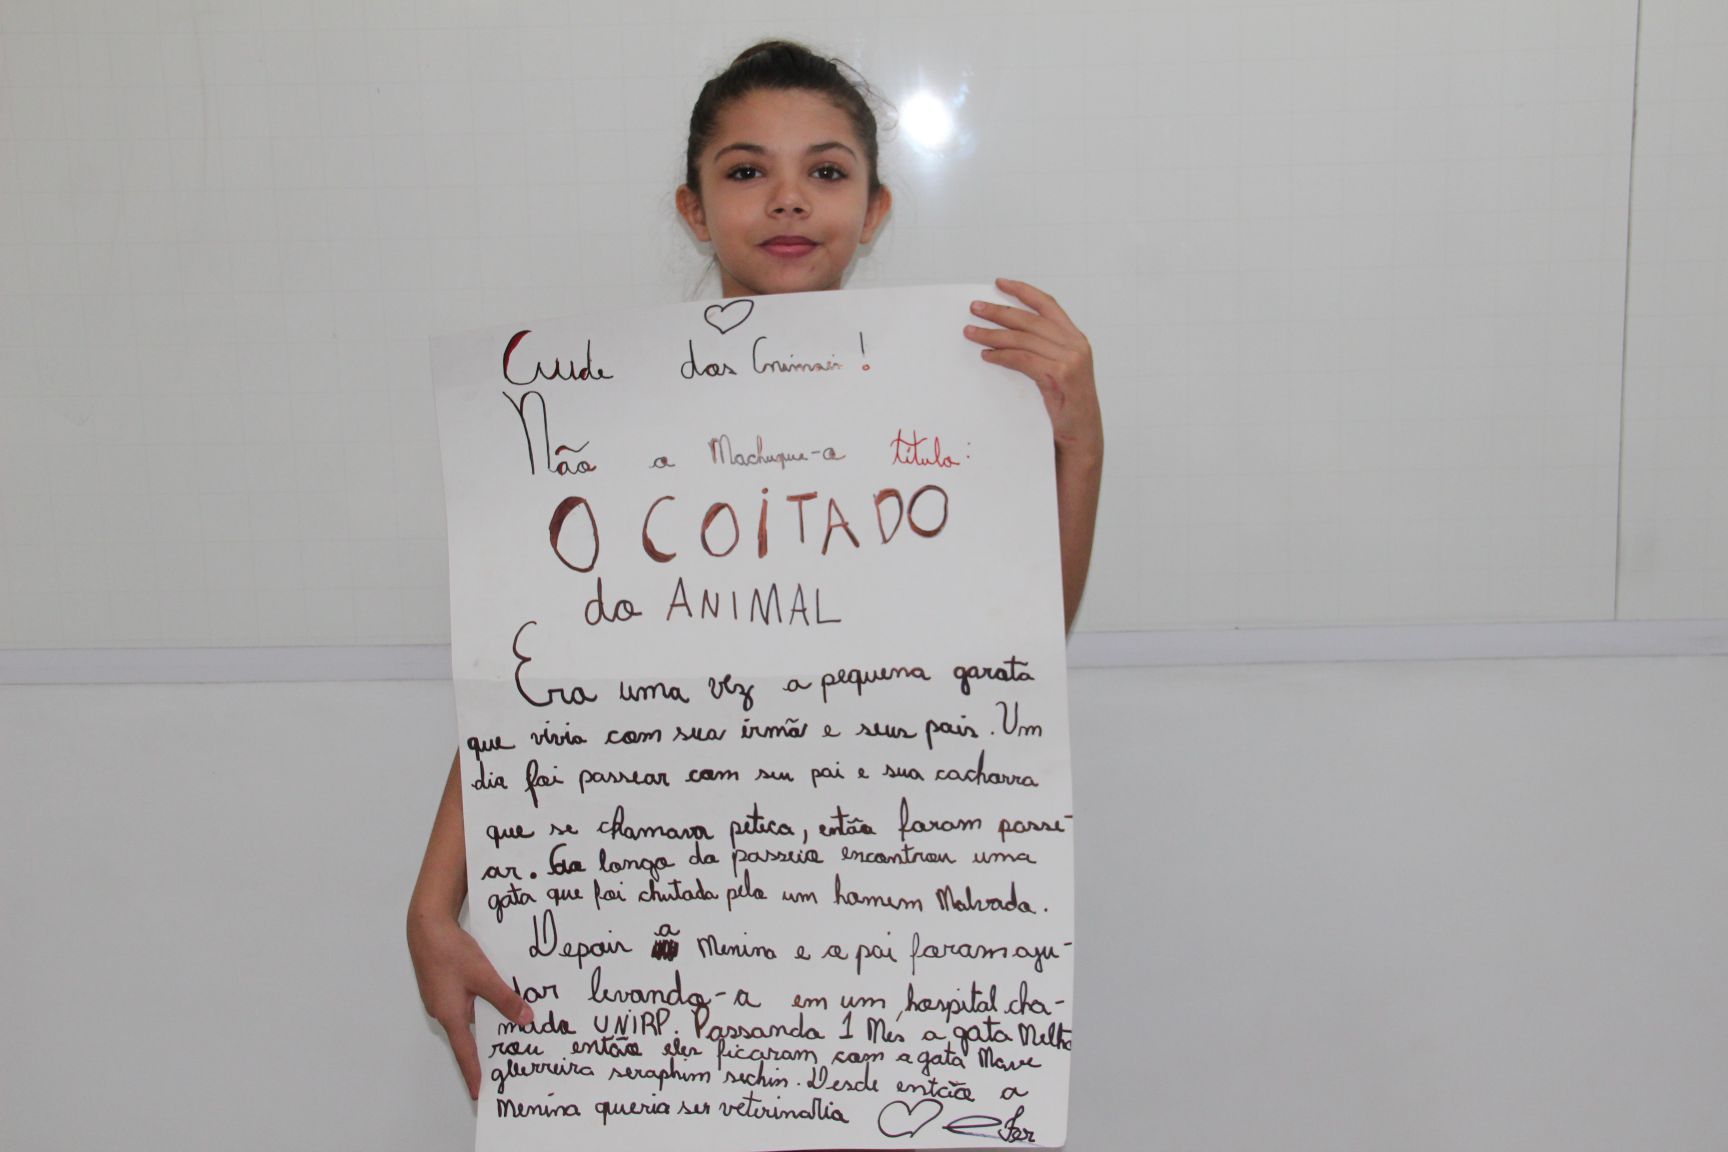 Cuide dos Animais!
Não a Machuque-a título:
O COITADO
do ANIMAL
Era uma vez a pequena garota
que vivia com sua irmã e seus pais. Um
dia foi passear com seu pai e sua cachorra
que se chamava petica, então foram passe-
ar. Ao longo do passeio encontrou uma
gata que foi chutada pelo um homem Malvado.
Depois a Menina e o pai foram aju-
dar levando-a em um hospital cha-
mado UNIRP. Passando 1 Mês a gata Melho
rou então eles ficaram com a gata Mave
guerreira seraphim sechin. Desde então a
Menina queria ser veterinaria
Fer